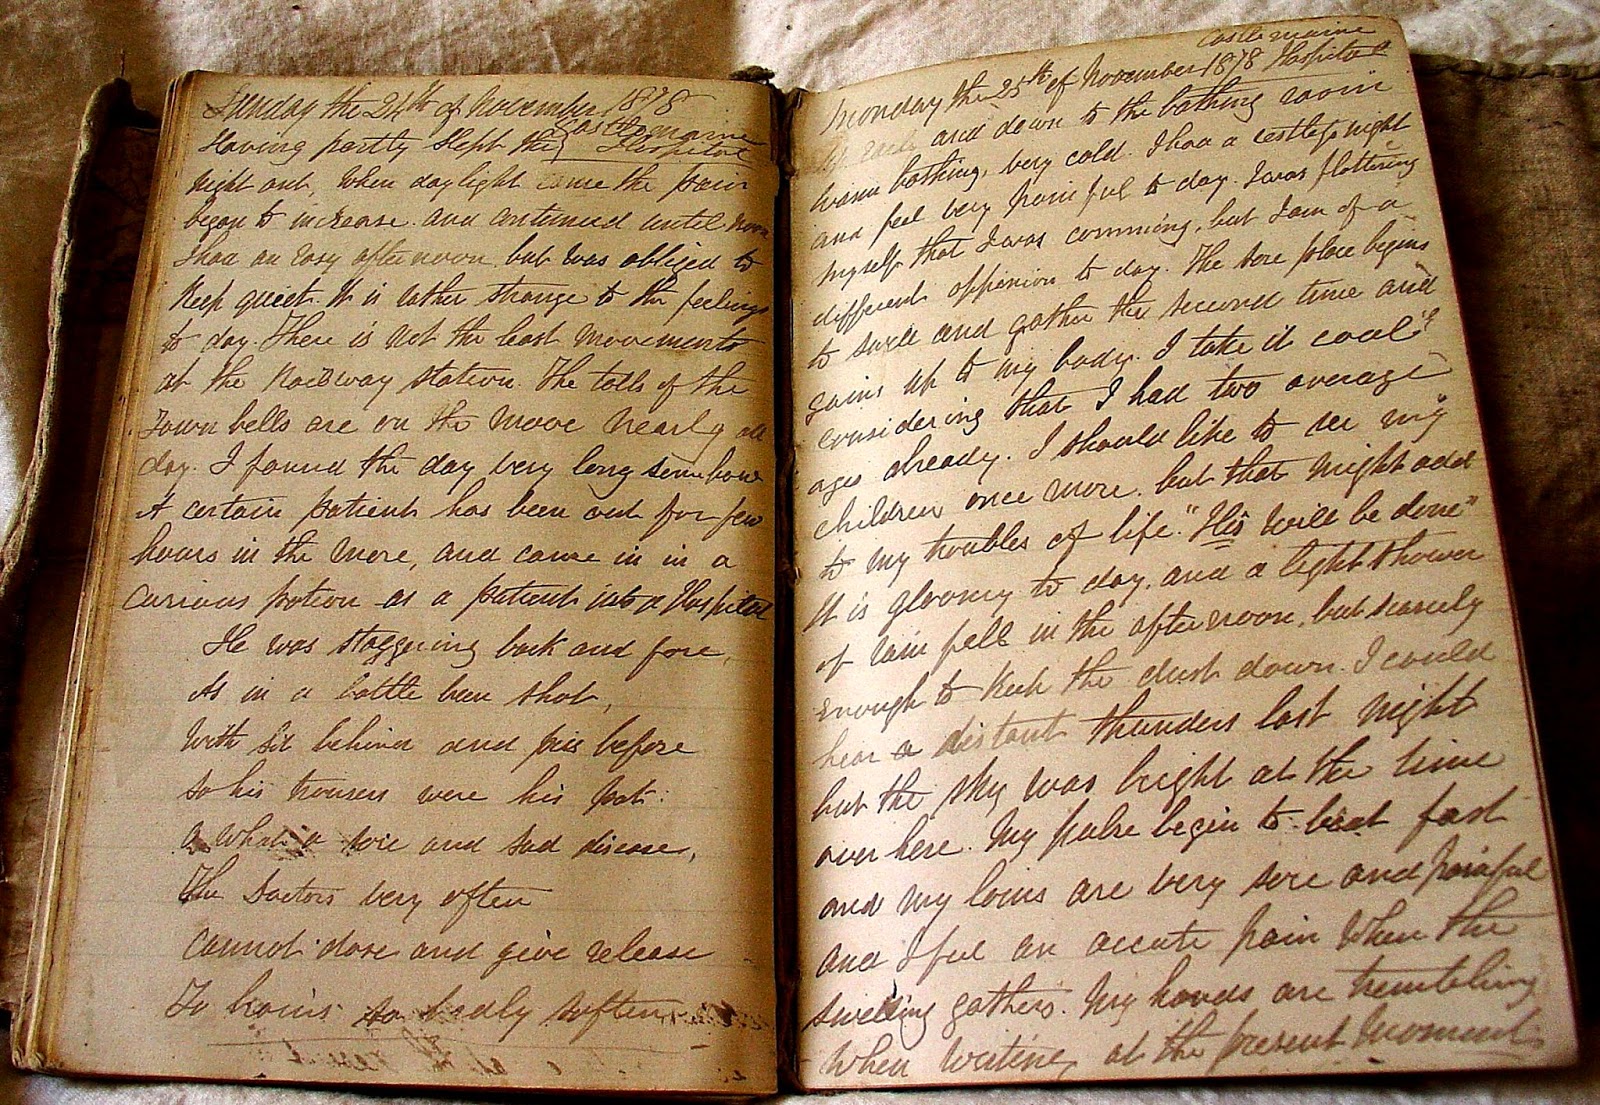 Sunday the 24th of November 1878
Castlemaine
Having partly slept the Hospital
night out, When daylight came the pain
began to increase and continued until noon
I had an easy afternoon but was obliged to
Keep quiet. It is rather strange to the feelings
to day. There is not the least movements
at the Railway station. The tolls of the
Town bells are on the move nearly all
day. I found the day very long somehow
A certain patient has been out for few
hours in the more, and came in in a
Curious potion as a patient into a Hospital
He was staggering back and fore,
As in a battle been shot,
With sit behind and piss before
So his trousers were his pot:
What a sore and sad disease,
The Doctors very often
Cannot dose and give release
To brains so badly soften
Castlemaine
Monday the 25th of November 1878 Hospital
Up early and down to the bathing room
warm bathing, very cold. I had a restless night
and feel very painful to day. I was flattering
myself that I was comming, but I am of a
different oppinion to day. The sore place begins
to swell and gather the second time and
gains up to my body. I take it cool
considering that I had two average
ages already. I should like to see my
children once more, but that might add
to my troubles of life. "His will be done"
It is gloomy to day, and a light shower
of rain fell in the afternoon, but scarcely
enough to keep the dust down. I could
hear a distant thunders last night
but the sky was bright at the time
over here. My pulse begin to beat fast
and my loins are very sore and painful
and I feel an accute pain When the
swelling gathers. My hands are trembling
When writing at the present moment